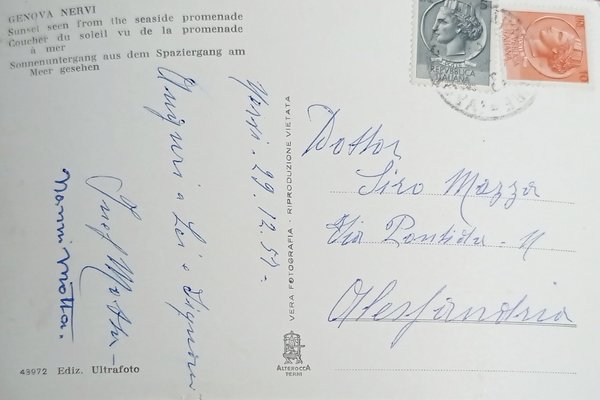 GENOVA NERVI
Sunset seen from the seaside promenade
Coucher du soleil vu de la promenade
à mer
Sonnenuntergang aus dem Spaziergang am
Meer gesehen
Nervi. 29.12.57-
Auguri a Lei e Signora
Motta
Nanni Motta.
43972 Ediz. Ultrafoto
VERA FOTOGRAFIA - RIPRODUZIONE VIETATA
ALTEROCCA
TERNI
5
REPVBBLICA
ITALIANA
10
Dottor
Siro Mazza
Via Pontida - 11
Alessandria